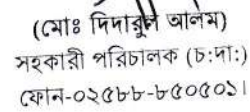 (মোঃ দিদারুল আলম)
সহকারী পরিচালক (চ:দা:)
ফোন-০২৫৮৮-৮৫০৫০১